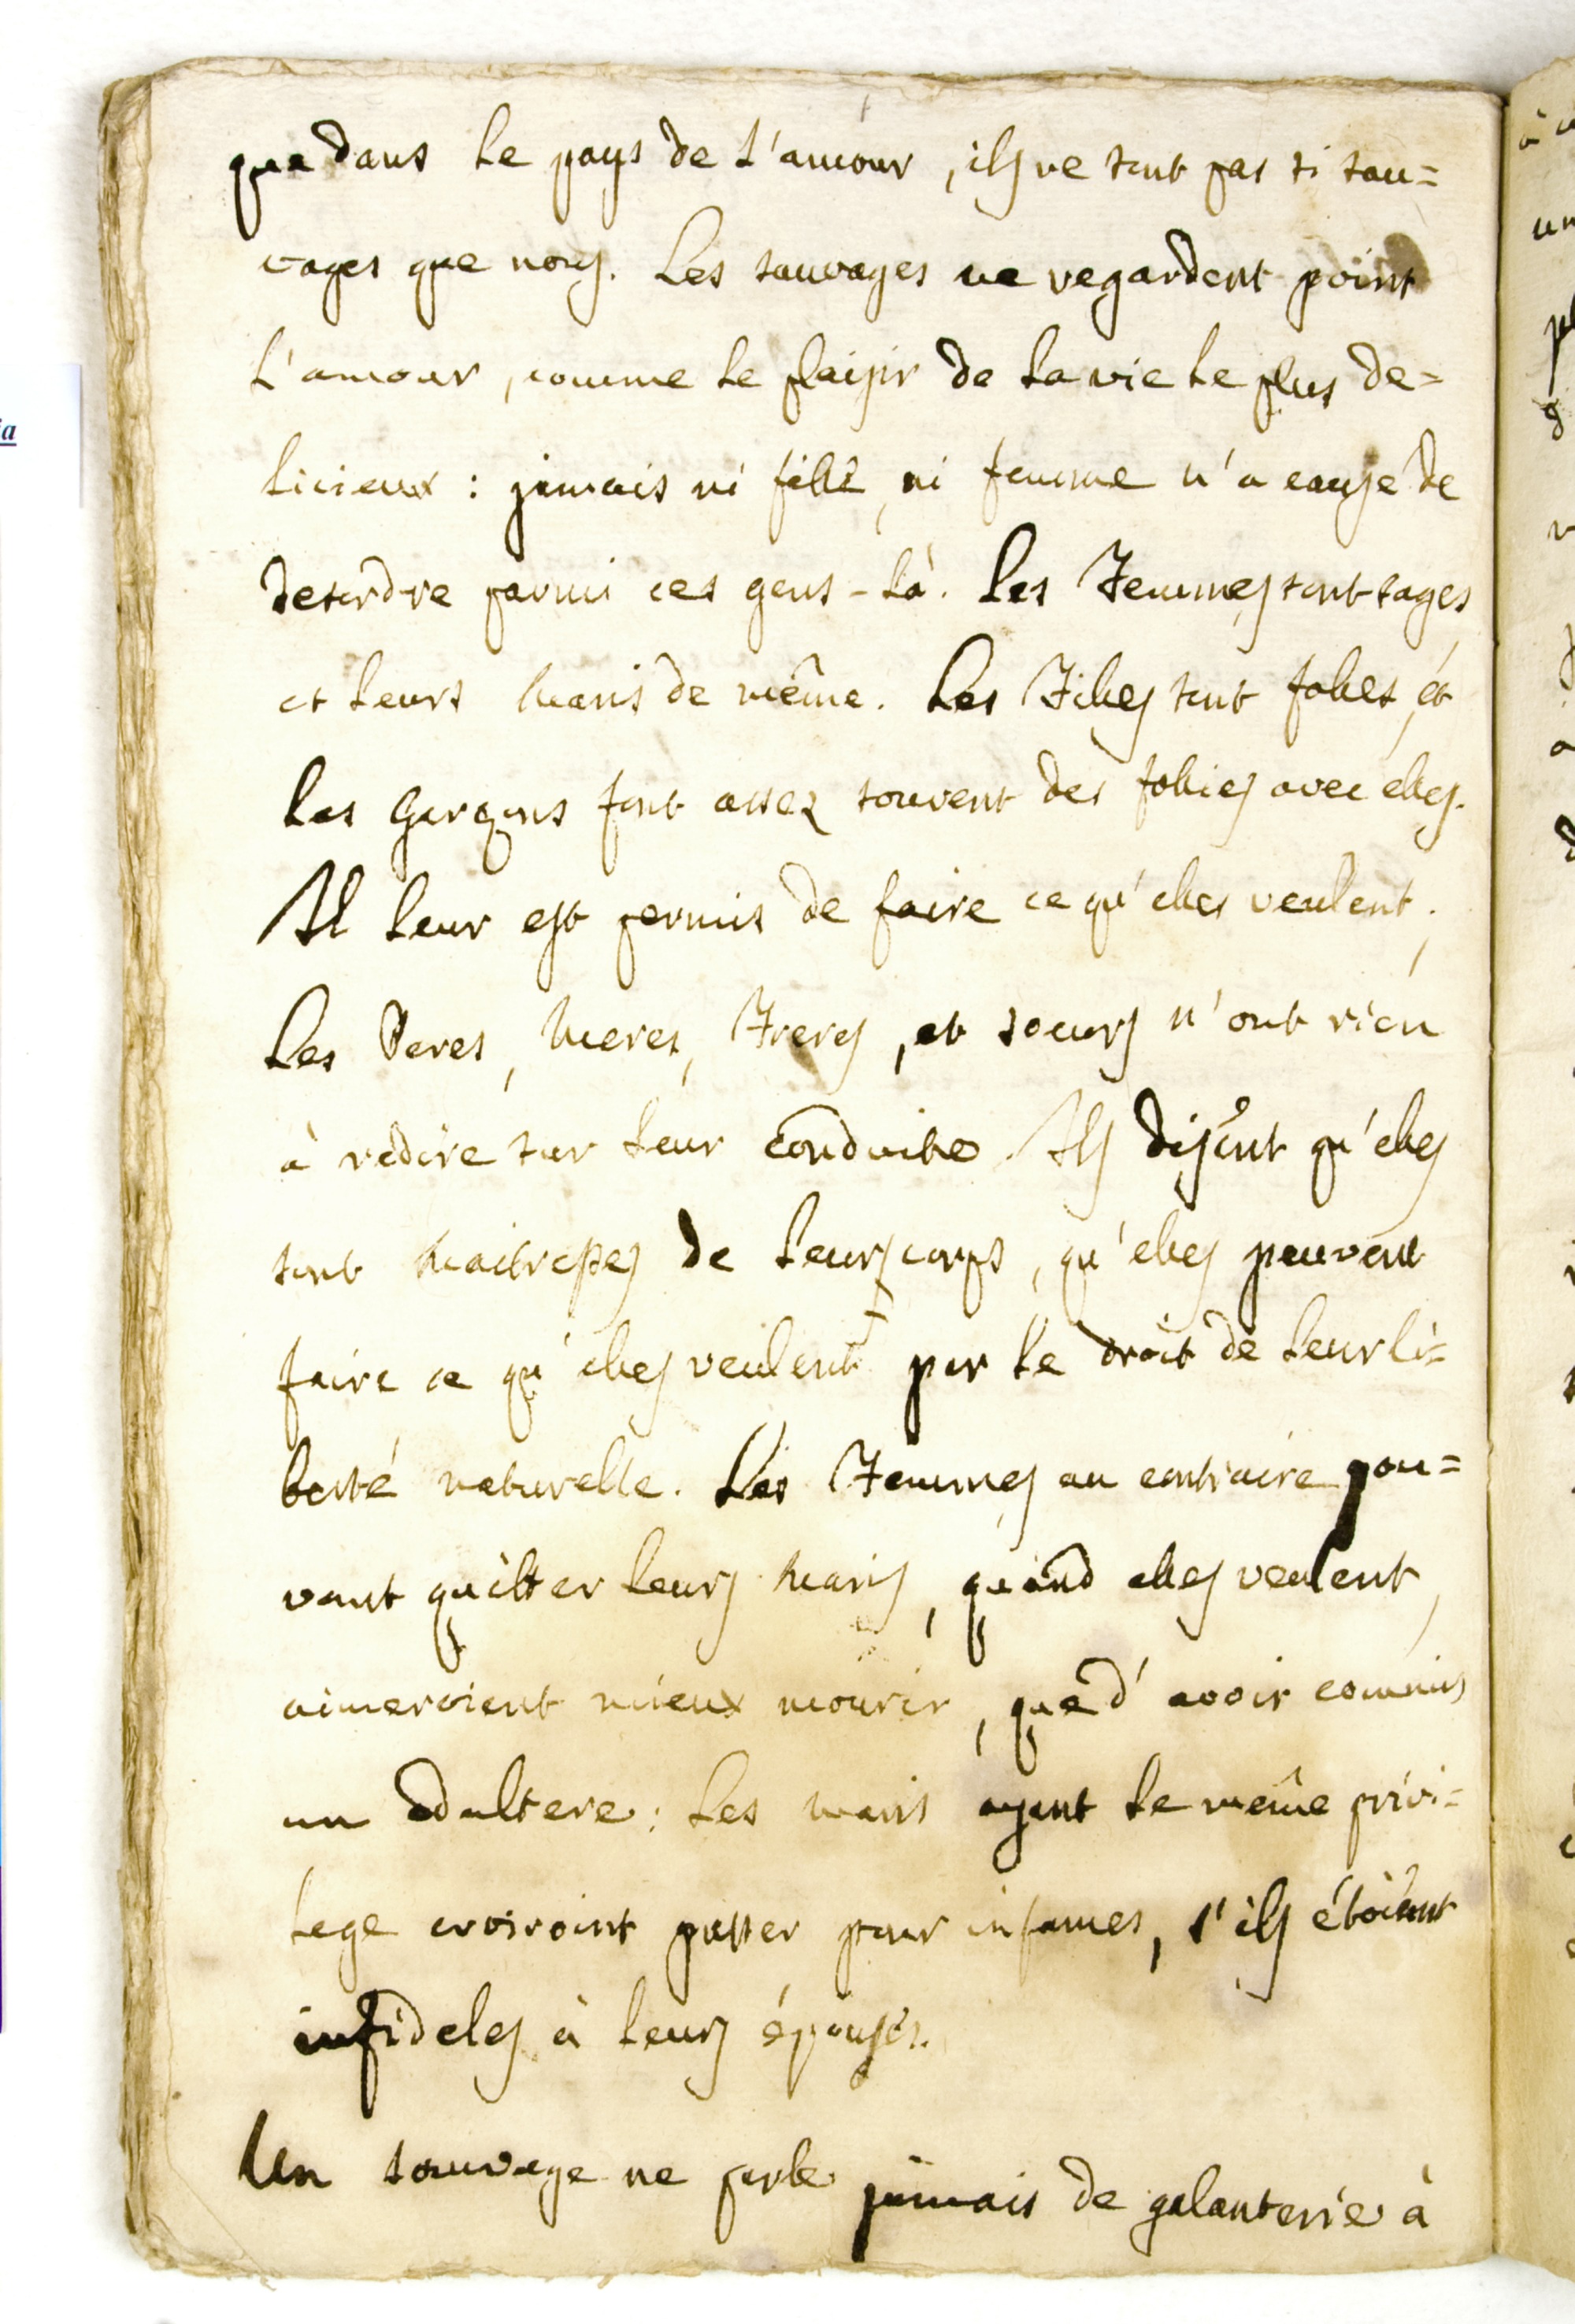 que dans le pays de l'amour, ils ne sont pas si sau=
vages que nous. Les sauvages ne regardent point
l'amour, comme le plaisir de la vie le plus de=
licieux : jamais ni fille, ni femme n'a causé de
desordre parmi ces gens-là. Les Femmes sont sages
et leurs Maris de même. Les Filles sont folles, et
les Garçons font assez souvent des folies avec elles.
Il leur est permis de faire ce qu'elles veulent;
Les Peres, Meres, Freres, et soeurs n'ont rien
à redire sur leur conduite. Ils disent qu'elles
sont Maitresses de leurs corps, qu'elles peuvent
faire ce qu'elles veulent par le droit de leur li=
berté naturelle. Les Femmes au contraire pou=
vant quitter leurs Maris, quand elles veulent,
aimeroient mieux mourir, que d'avoir commis
un adultere: Les maris ayant le même privi=
lege croiroint passer pour infames, s'ils étoient
infideles à leurs épouses.
Un sauvage ne parle jamais de galanterie à